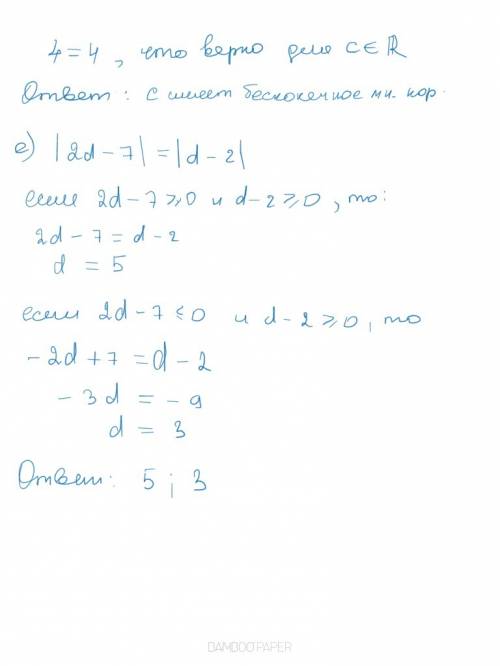 4 = 4, что верно для C ∈ ℝ
Ответ: с имеет бесконечное мн. кор.
е) |2d - 7| = |d - 2|
если 2d - 7 ⩾ 0 и d - 2 ⩾ 0, то:
2d - 7 = d - 2
d = 5
если 2d - 7 ⩽ 0 и d - 2 ⩾ 0, то
- 2d + 7 = d - 2
- 3d = - 9
d = 3
Ответ: 5 ; 3
BAMBOOPAPER